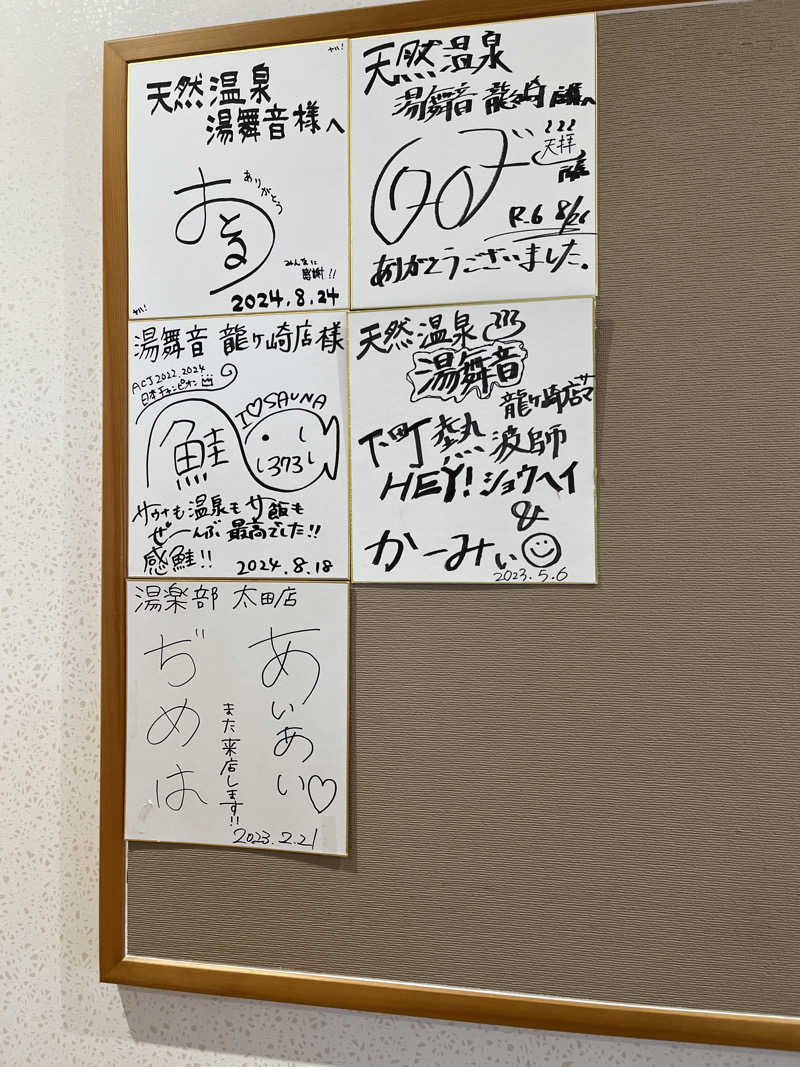 ヤバ!
天然温泉
湯舞音様へ
ありがとう
おとる
みんなに
感謝!!
2024.8.24
ヤバ!
天然温泉
湯舞音 龍ヶ崎店様へ
天拝
R.6 8/26
ありがとうございました。
湯舞音 龍ヶ崎店様
ACJ2022.2024
日本チャンピオン
I♡SAUNA
鮭
1373
サウナも温泉もサ飯も
ぜーんぶ最高でした!!
感鮭!!
2024.8.18
天然温泉
湯舞音
龍ヶ崎店サマ
下町熱波師
HEY!ショウヘイ
&
かーみぃ
2023.5.6
湯楽部 太田店
あぃあぃ♡
また来店します!!
ぢめは
2023.2.21